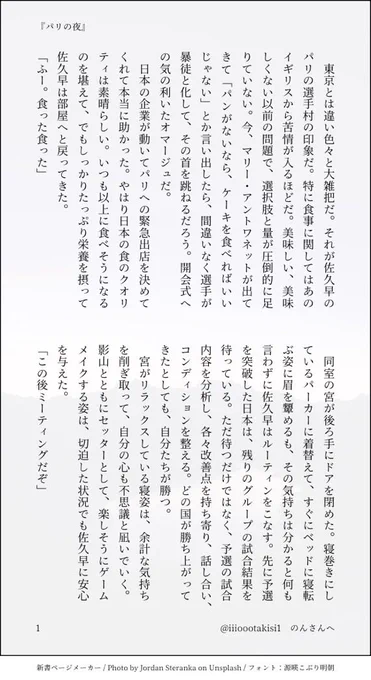 『パリの夜』
　東京とは違い色々と大雑把だ。それが佐久早の
パリの選手村の印象だ。特に食事に関してはあの
イギリスから苦情が入るほどだ。美味しい、美味
しくない以前の問題で、選択肢と量が圧倒的に足
りていない。今、マリー・アントワネットが出て
きて「パンがないなら、ケーキを食べればいい
じゃない」とか言い出したら、間違いなく選手が
暴徒と化して、その首を跳ねるだろう。開会式へ
の気の利いたオマージュだ。
　日本の企業が動いてパリへの緊急出店を決めて
くれて本当に助かった。やはり日本の食のクオリ
ティは素晴らしい。いつも以上に食べそうになる
のを堪えて、でもしっかりたっぷり栄養を摂って
佐久早は部屋へと戻ってきた。
「ふー。食った食った」
　同室の宮が後ろ手にドアを閉めた。寝巻きにし
ているパーカーに着替えて、すぐにベッドに寝転
ぶ姿に眉を顰めるも、その気持ちは分かると何も
言わずに佐久早はルーティンをこなす。先に予選
を突破した日本は、残りのグループの試合結果を
待っている。ただ待つだけではなく、予選の試合
内容を分析し、各々改善点を持ち寄り、話し合い、
コンディションを整える。どの国が勝ち上がって
きたとしても、自分たちが勝つ。
　宮がリラックスしている寝姿は、余計な気持ち
を削ぎ取って、自分の心も不思議と凪いでいく。
影山とともにセッターとして、楽しそうにゲーム
メイクする姿は、切迫した状況でも佐久早に安心
を与えた。
「この後ミーティングだぞ」
1
@iiioootakisi1　のんさんへ
新書ページメーカー / Photo by Jordan Steranka on Unsplash / フォント：源暎こぶり明朝